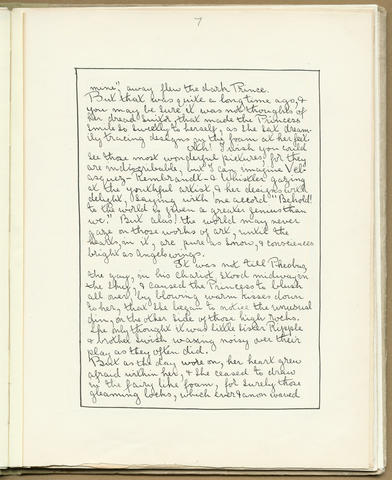 7
mine", away flew the dark Prince.
But that was quite a long time ago, &
you may be sure it was not thoughts of
her dread suitor, that made the Princess
smile so sweetly to herself, as she sat dream-
ily tracing designs in the foam at her feet.
Ah! I wish you could
see those most wonderful pictures, for they
are indiscribable, but I can imagine Vel-
asquez - Rembrandt - & Whistler gazing
at the youthful artist & her designs with
delight, saying with one accord "Behold!
to the world is given a greater genius than
we." But alas! the world may never
gaze on those works of art, until the
hearts, in it, are pure as snow, & consciences
bright as Angels wings.
It was not till Pheobus
the gay, in his chariot stood midway in
the sky, & caused the Princess to blush
all over, by blowing warm kisses down
to her, that she began to notice the unusual
din, on the other side of those high rocks.
She only thought it was little sister Ripple
& brother Swish waxing noisy over their
play as they often did.
But as the day wore on, her heart grew
afraid within her, & she ceased to draw
in the fairy like foam, for surely those
gleaming locks, which ever & anon waved